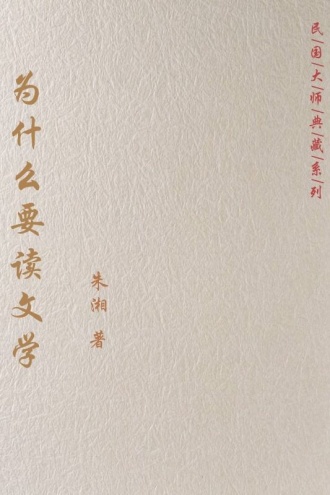 民|国|大|师|典|藏|系|列
为什么要读文学
朱湘 著